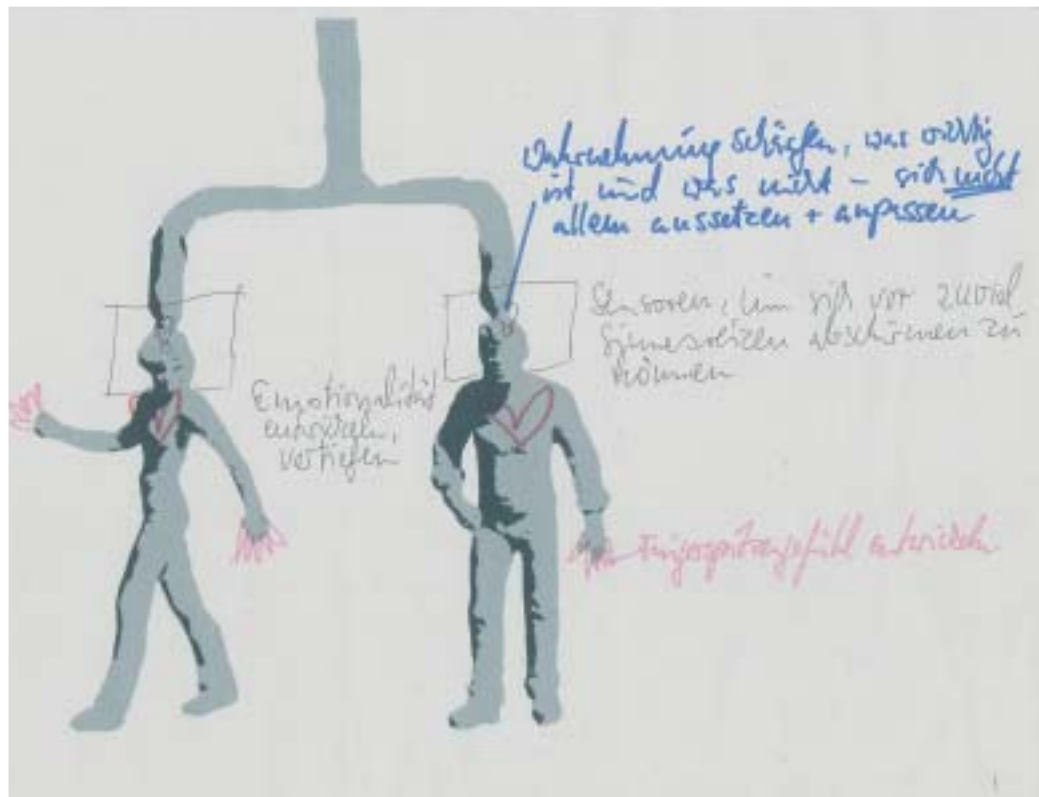 Wahrnehmung schärfen, was wichtig
ist und was nicht – sich nicht
allem aussetzen + anpassen
Sensoren, um sich vor zuviel
Sinnesreizen abschirmen zu
können
Emotionalität
vertiefen
Fingerspitzengefühl entwickeln